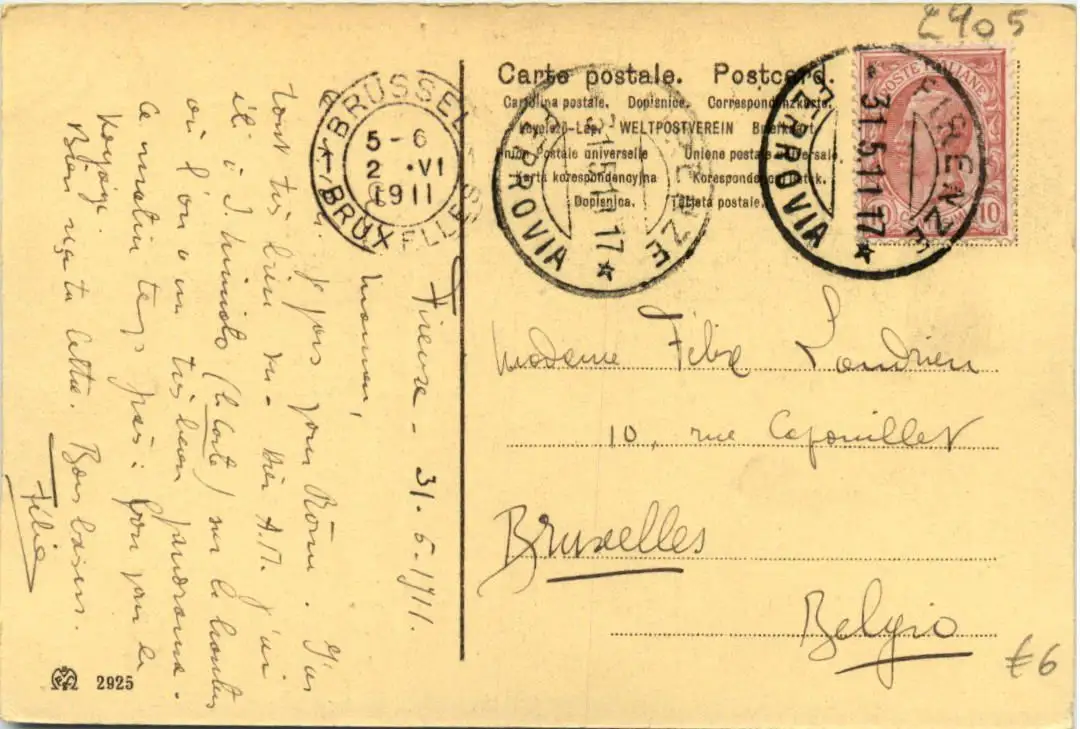 2905
Carte postale. Postcard.
Cartolina postale. Dopisnice. Correspondenzkarte.
Levelező-Lap. WELTPOSTVEREIN Briefkart.
Union Postale universelle Unione postale universale.
Karta korespondencyjna Korespondenční lístek.
Dopisnica. Tarjeta postale.
POSTE ITALIANE
10 CENTESIMI 10
FIRENZE
31.5.11 17
FERROVIA
FIRENZE
31.5.11 17
FERROVIA
BRUSSEL
5-6
2 VI
1911
BRUXELLES
Madame Félix Landrien
10, rue Capouillet
Bruxelles
Belgio
€6
Firenze - 31. 5. 1911.
maman,
je pars pour Rome. J'ai
tout très bien A.M. J'ai
été à S. Miniato (la carte) sur la hauteur
où l'on a un très beau panorama.
Ce matin temps pour le
voyage.
Bien reçu ta lettre. Bons baisers.
Félix
2925